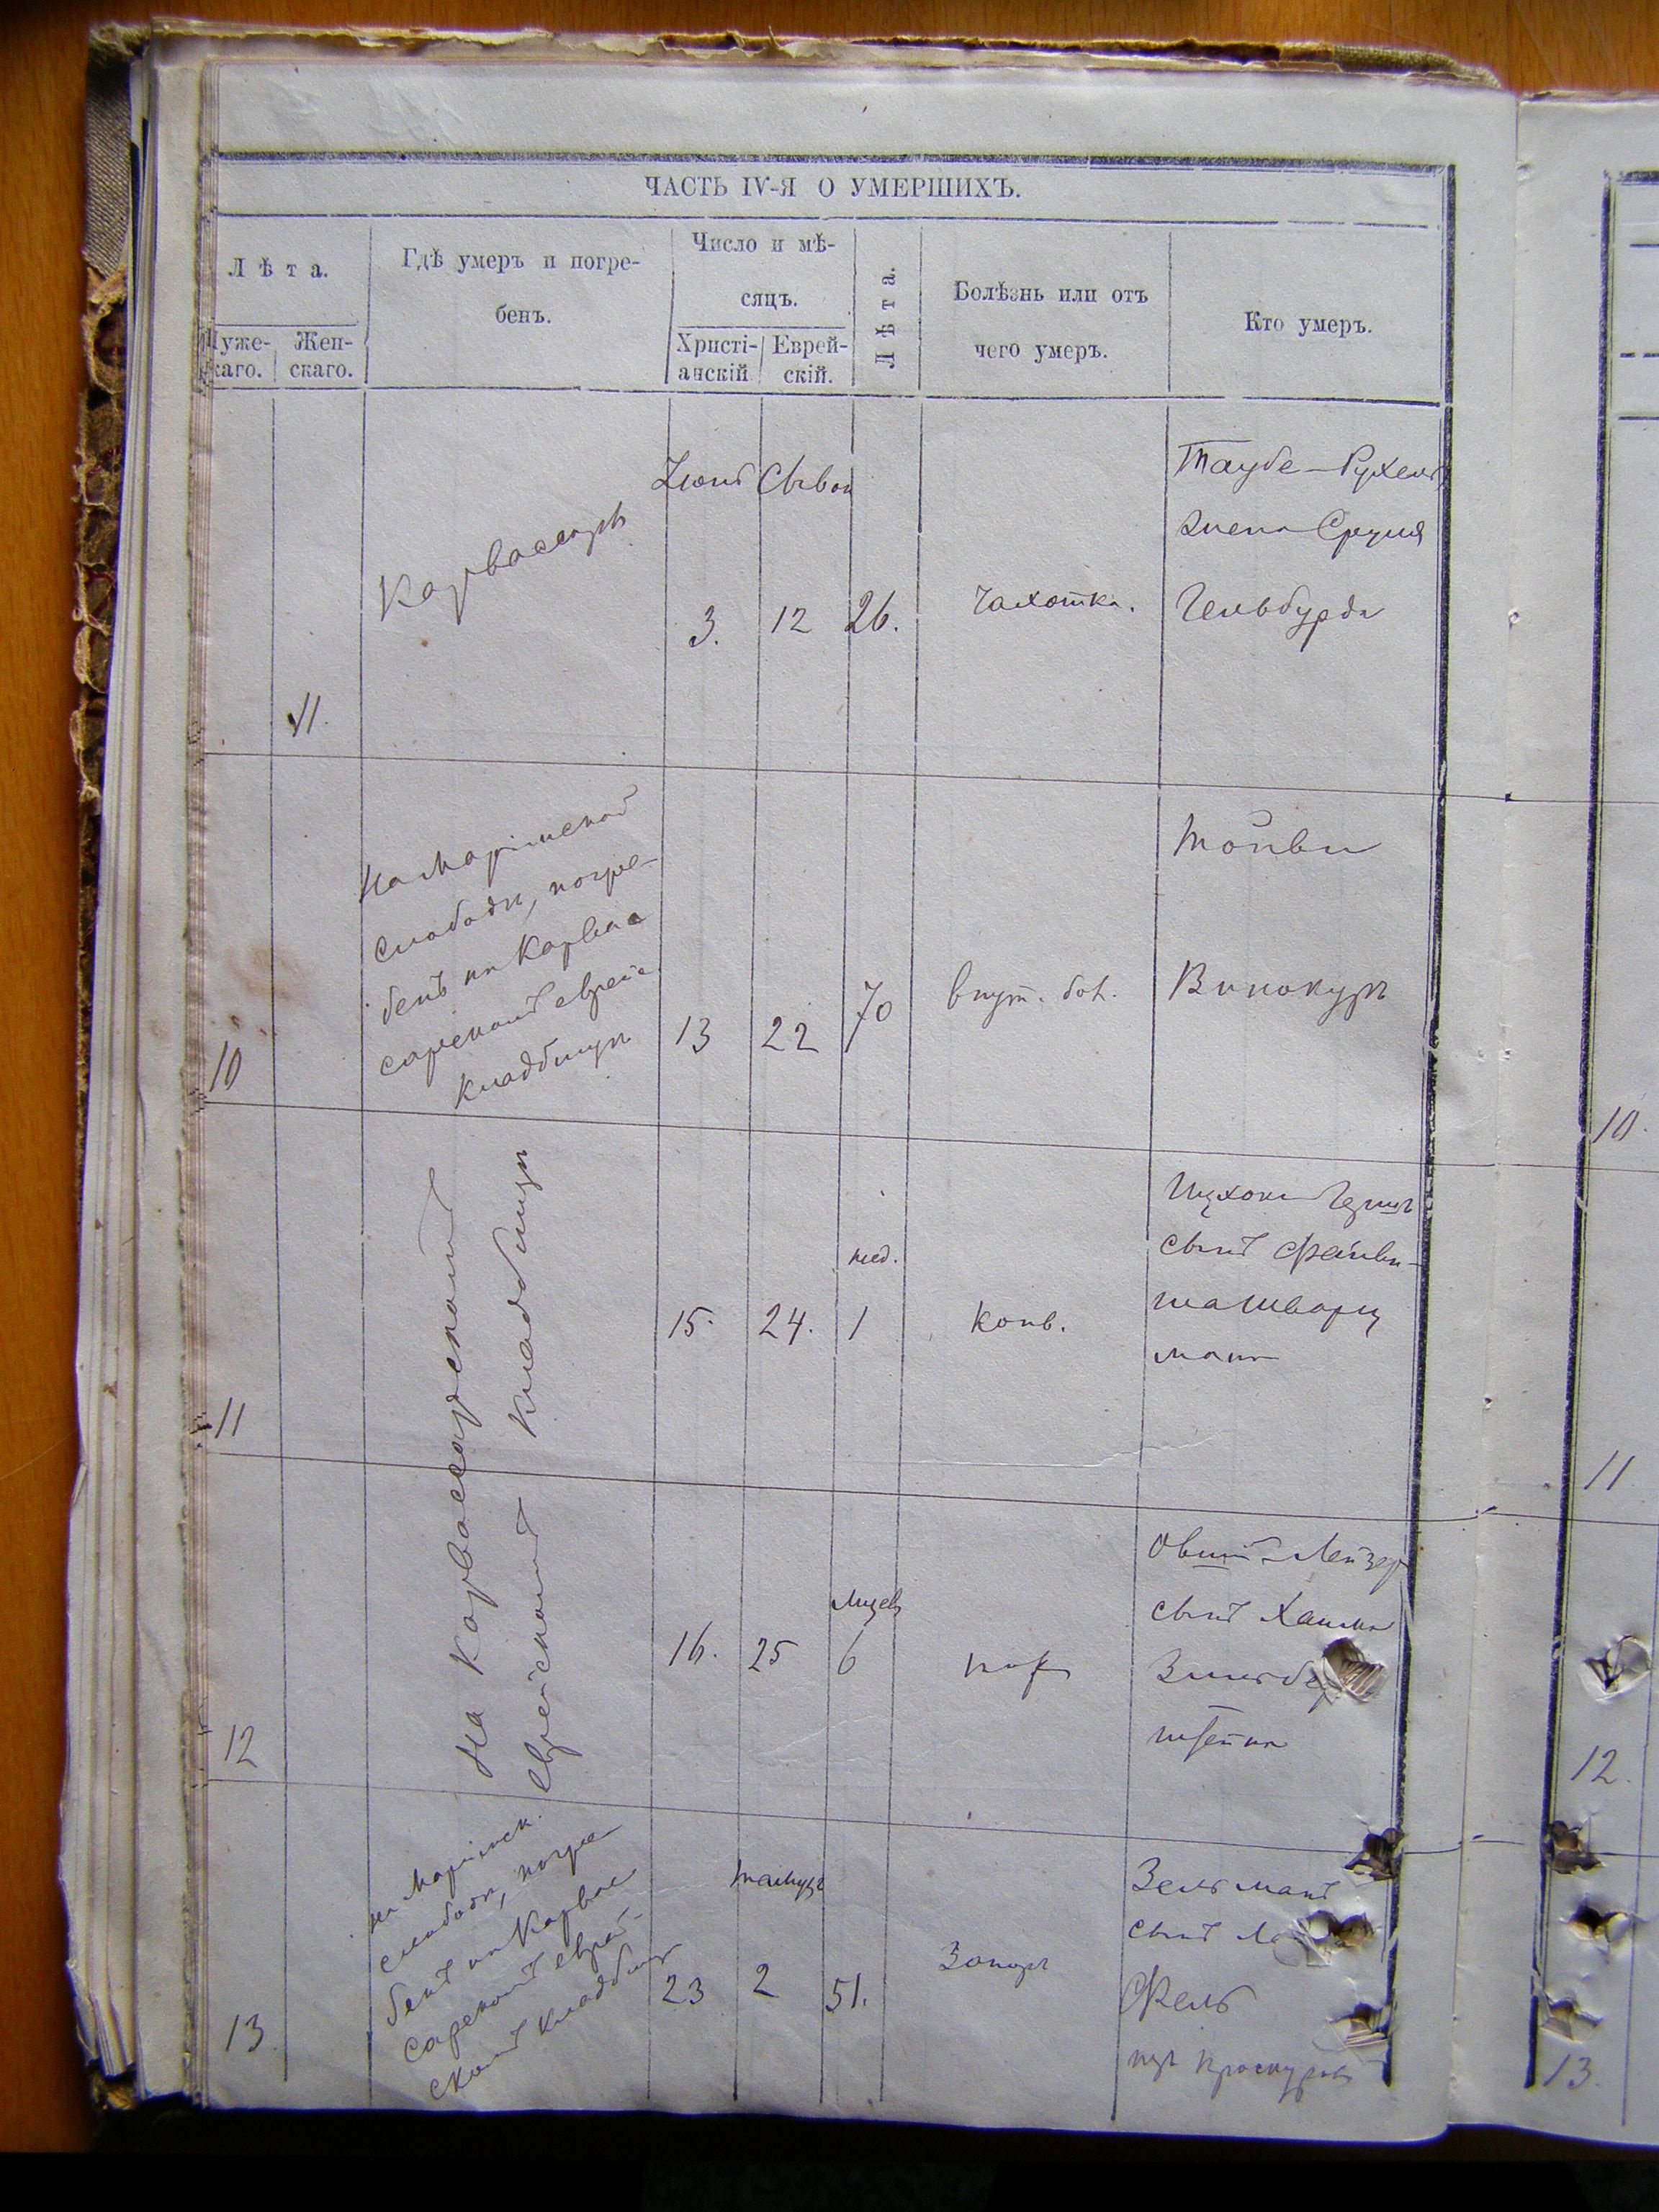 ЧАСТЬ IV-Я О УМЕРШИХЪ.
Лѣта.
Муже-
скаго.
Жен-
скаго.
Гдѣ умеръ и погре-
бенъ.
Число и мѣ-
сяцъ.
Христі-
анскій
Еврей-
скій.
Лѣта.
Болѣзнь или отъ
чего умеръ.
Кто умеръ.
11.
Карвассары
Іюнь
3.
Сывон
12
26.
Чахотка.
Таубе-Рухель
жена Сруля
Гельбурда
10
На Маріинской
слободѣ, погре-
бенъ на Карвас
сарскомъ еврейс.
кладбищѣ
13
22
70
внут. бол.
Тойви
Винокуръ
11
На Карвассарскомъ
Еврейскомъ кладбищѣ
15.
24.
нед.
1
конв.
Ицхокъ Герш
сынъ Файви-
ша Шварц
мана
12
16.
25
мѣсев
6
Овший-Лейзер
сынъ Хаима
Зильбер
штейна
13
на Маріинск.
слободѣ, погре-
бенъ на Карвас
сарскомъ еврей-
скомъ кладбищѣ
23
тамузъ
2
51.
Запоръ
Зельманъ
сынъ
Фель
изъ Проскурова
10.
11
12.
13.